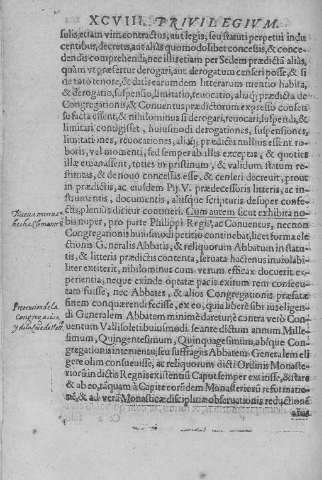 XCVIII. PRIVILEGIVM.
sulis, etiam vim contractus, aut legis, seu statuti perpetui indu
centibus, decretis, aut aliàs quomodolibet concessis, & conce-
dendis comprehendi, nec illis etiam per Sedem prædictā aliàs,
quàm vt præfertur derogari, aut derogatum censeri posse, & si
de toto tenore, & datis earumdem litterarum mentio habita,
& derogatio, suspensio, limitatio, reuocatio, aliaq; prædicta de
Congregationis, & Conuentus prædictorum expresso consen
su facta essent, & nihilominus si derogari, reuocari, suspendi, &
limitari contigisset, huiusmodi derogationes, suspensiones,
limitationes, reuocationes, aliaq; prædicta nullius essent ro-
boris, vel momenti, sed semper ab illis exceptas, & quoties
illæ emanassent, toties in pristinum, & validum statum re-
stitutas, & denouo concessas esse, & censeri decreuit, prout
in prædictis, ac eiusdem Pij.V. prædecessoris litteris, ac in-
strumentis, documentis, aliisque scripturis desuper confe-
ctis, plenius dicitur contineri. Cum autem sicut exhibita no-
bis nuper, pro parte Philippi Regis, ac Conuentus, necnon
Congregationis huiusmodi petitio continebat, licet forma ele
ctionis Generalis Abbatis, & reliquorum Abbatum in statu-
tis, & litteris prædictis contenta, seruata hactenus inuiolabi-
liter extiterit, nihilominus cum verum efficax docuerit ex-
perientia, neque exinde optatæ pacis exitum rem consecu-
tam fuisse, nec Abbates, & alios Congregationis præfatæ
finem conquærendi fecisse, ex eo, quia libere sibi ius eligen-
di Generalem Abbatem minimè daretur: cum
uentum Vallisoleti huiusmodi seante dictum annum Mille-
simum, Quingentesimum, Quinquagesimum, absque Con-
gregationis interuentu, seu suffragiis Abbatem Generalem eli
gere olim consueuisse, ac reliquorum dicti Ordinis Monaste-
riorū in dictis Regnis existentiū Caput semper extitisse, & stare
& ab eo, tāquam à Capite eorūdem Monasteriorū reformatio-
nē, & ad verā Monasticæ disciplinæ obseruationis reductionē